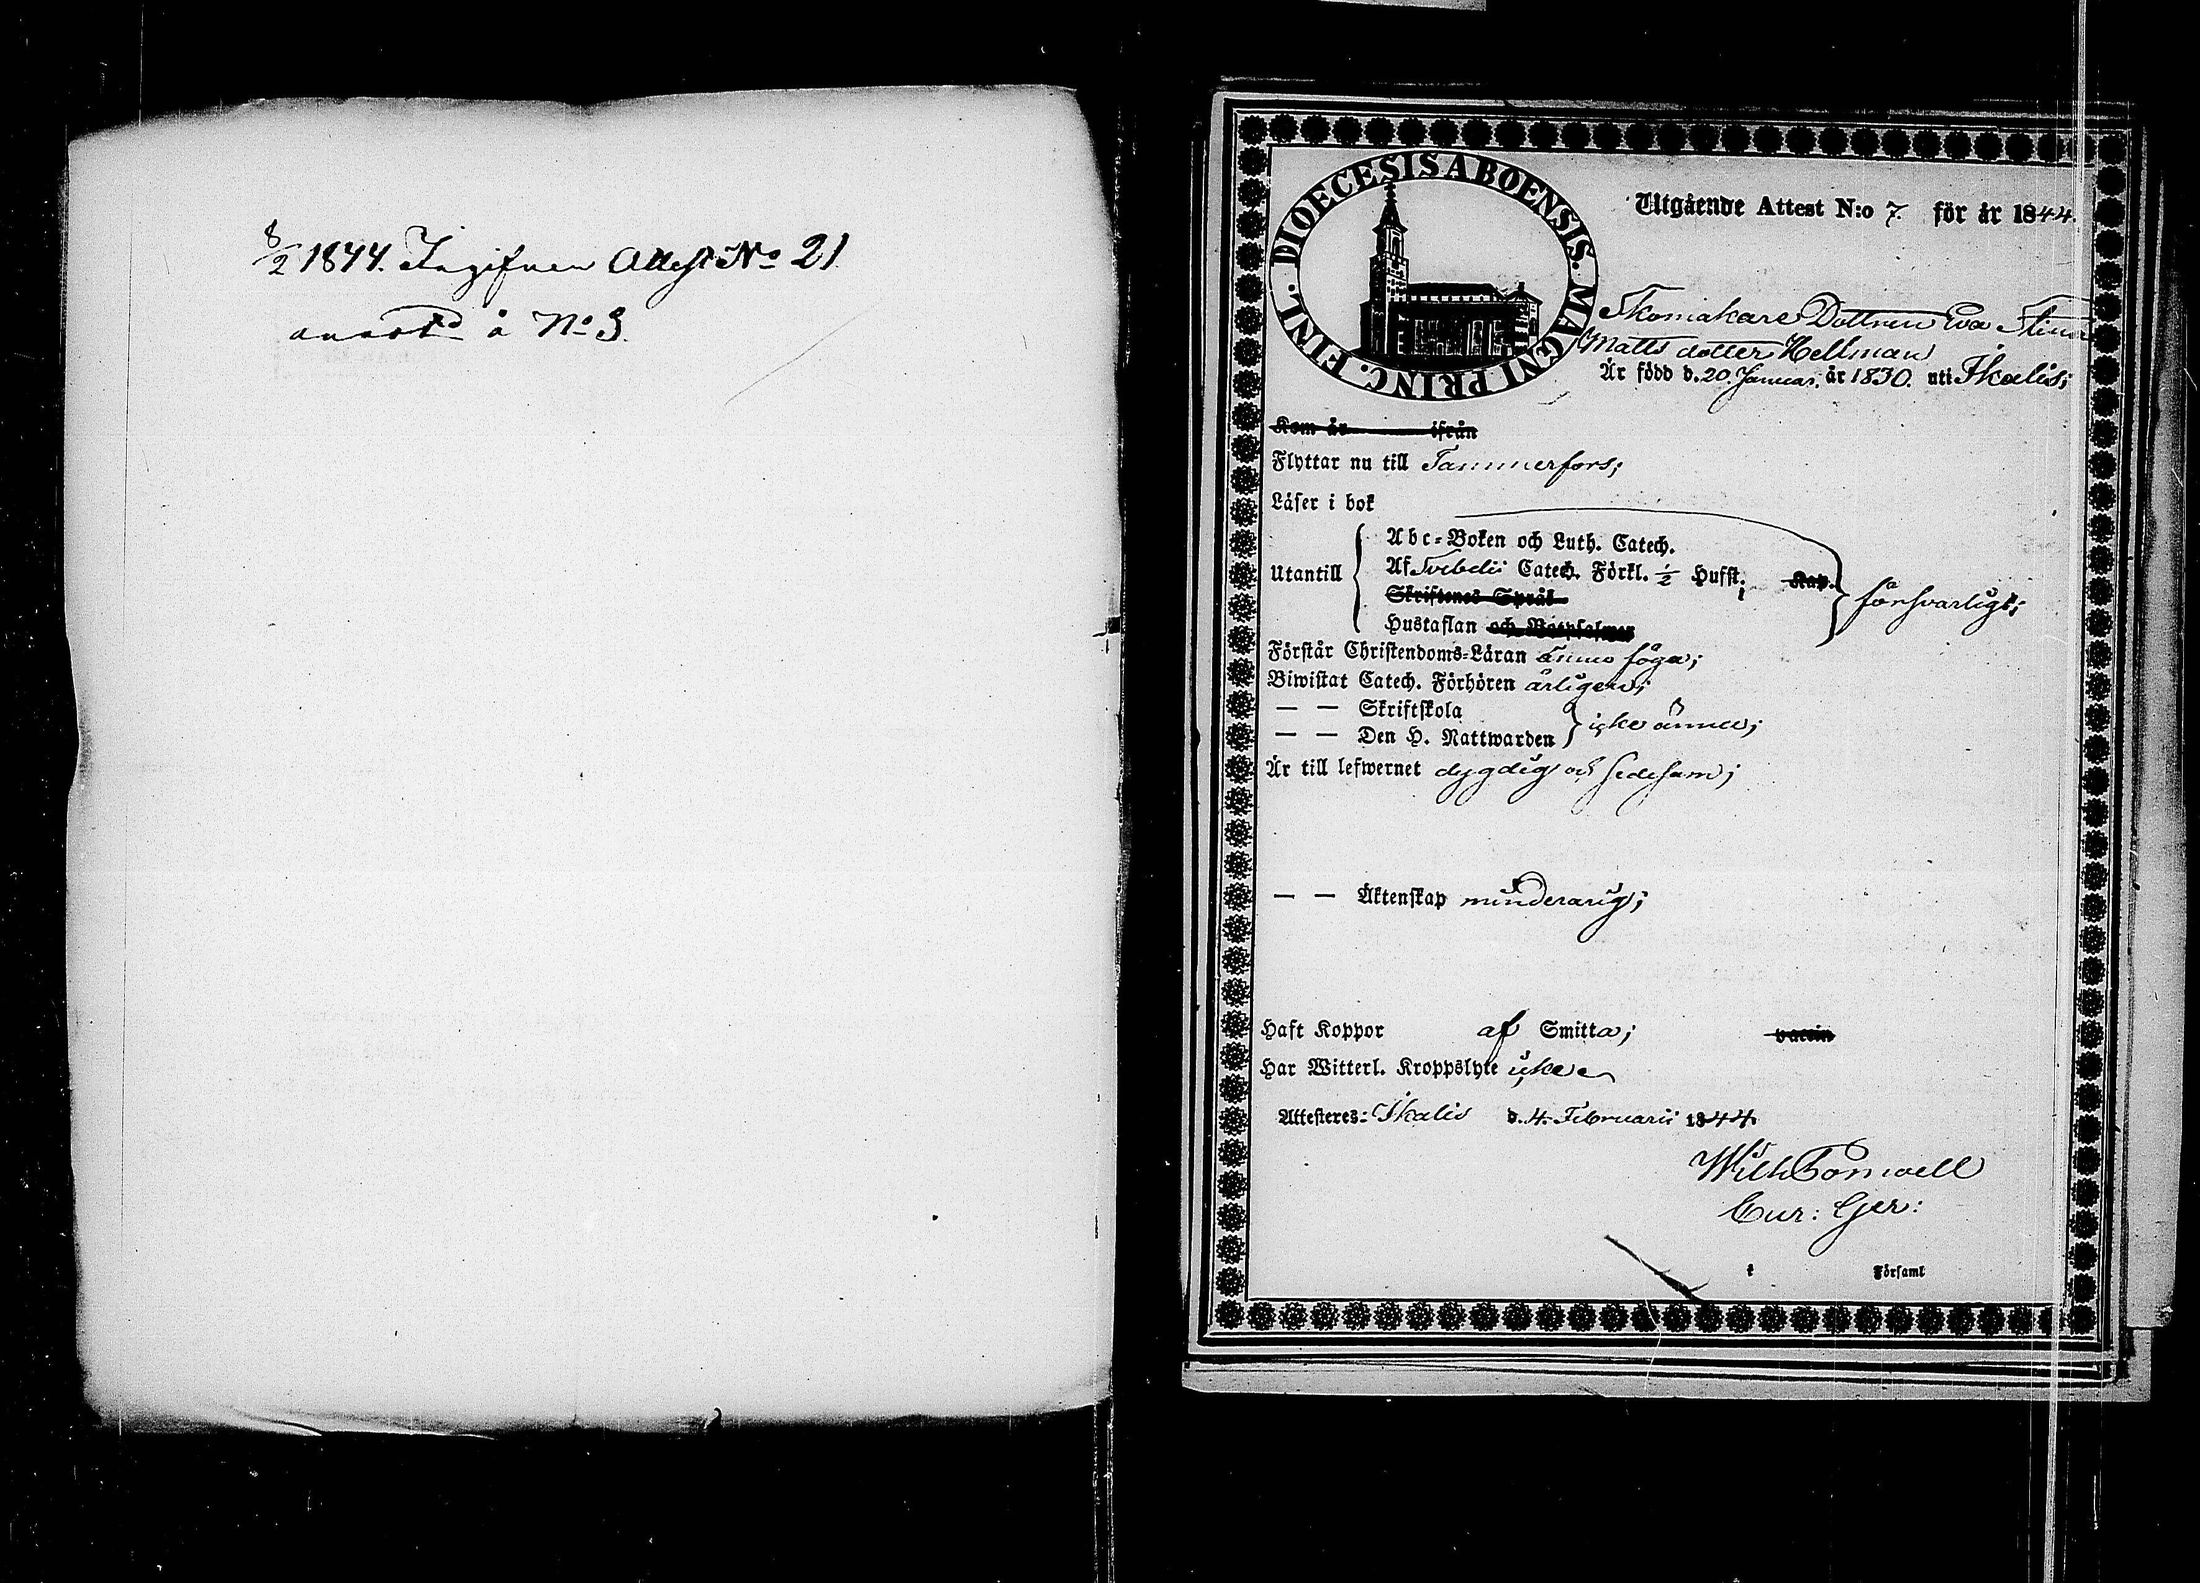 8/2 1844. Ingifven Attest No 21
å No 3.
DIOECESIS ABOENSIS. MAGNI PRINC. FINL.
Utgående Attest N:o 7. för år 1844.
Skomakare Dottren Eva Stina
Matts dotter Hellman
Är född d. 20. Januar. år 1830. uti Ikalis;
Kom år ifrån
Flyttar nu till Tammerfors;
Läser i bok
Abc-Boken och Luth. Catech.
Utantill Af Svebelii Catech. Förkl. 1/2 Hufst. Kap. försvarligt;
Skriftenes Språk
Hustaflan och Botpsalmer
Förstår Christendoms-Läran ännu föga;
Biwistat Catech. Förhören årligen;
— — Skriftskola
— — Den H. Nattwarden icke ännu;
Är till lefwernet dygdig och sedesam;
— — Äktenskap minderårig;
Haft Koppor af Smitta; vaccin
Har Witterl. Kroppslyte icke
Attesteres: Ikalis d. 4. Februarii 1844.
Wilh Forswell
Cur: Ger:
i Församl